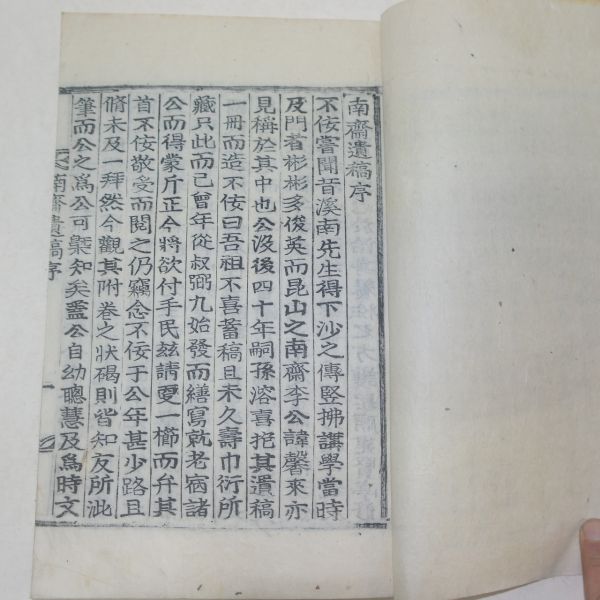 南齋遺稿序
不侫嘗聞昔溪南先生得下沙之傳竪拂講學當時
及門者彬彬多俊英而昆山之南齋李公諱馨來亦
見稱於其中也公沒後四十年嗣孫溶喜抱其遺稿
一冊而造不侫曰吾祖不喜蓄稿且未久壽巾衍所
藏只此而已曾年從叔弼九始發而繕寫就老宿諸
公而得蒙斤正今將欲付手民玆請愛一櫛而弁其
首不侫敬受而閲之仍竊念不侫于公年甚少路且
脩未及一拜然今觀其附卷之狀碣則皆知友所泚
筆而公之爲公可槩知矣盖公自幼聰慧及爲時文
南齋遺稿序
一